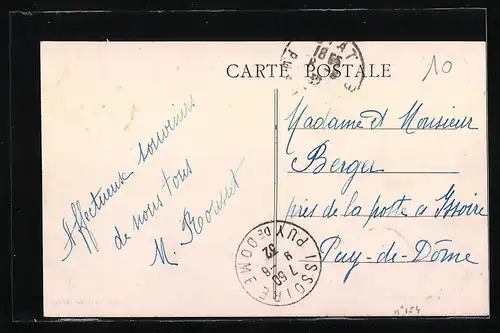 CARTE POSTALE
10
Affectueux souvenirs
de nous tous
M. Rousset
Madame & Monsieur
Berger
près de la poste à Issoire
Puy-de-Dôme
ISSOIRE PUY DE DOME
7 50
9 32
n° 154